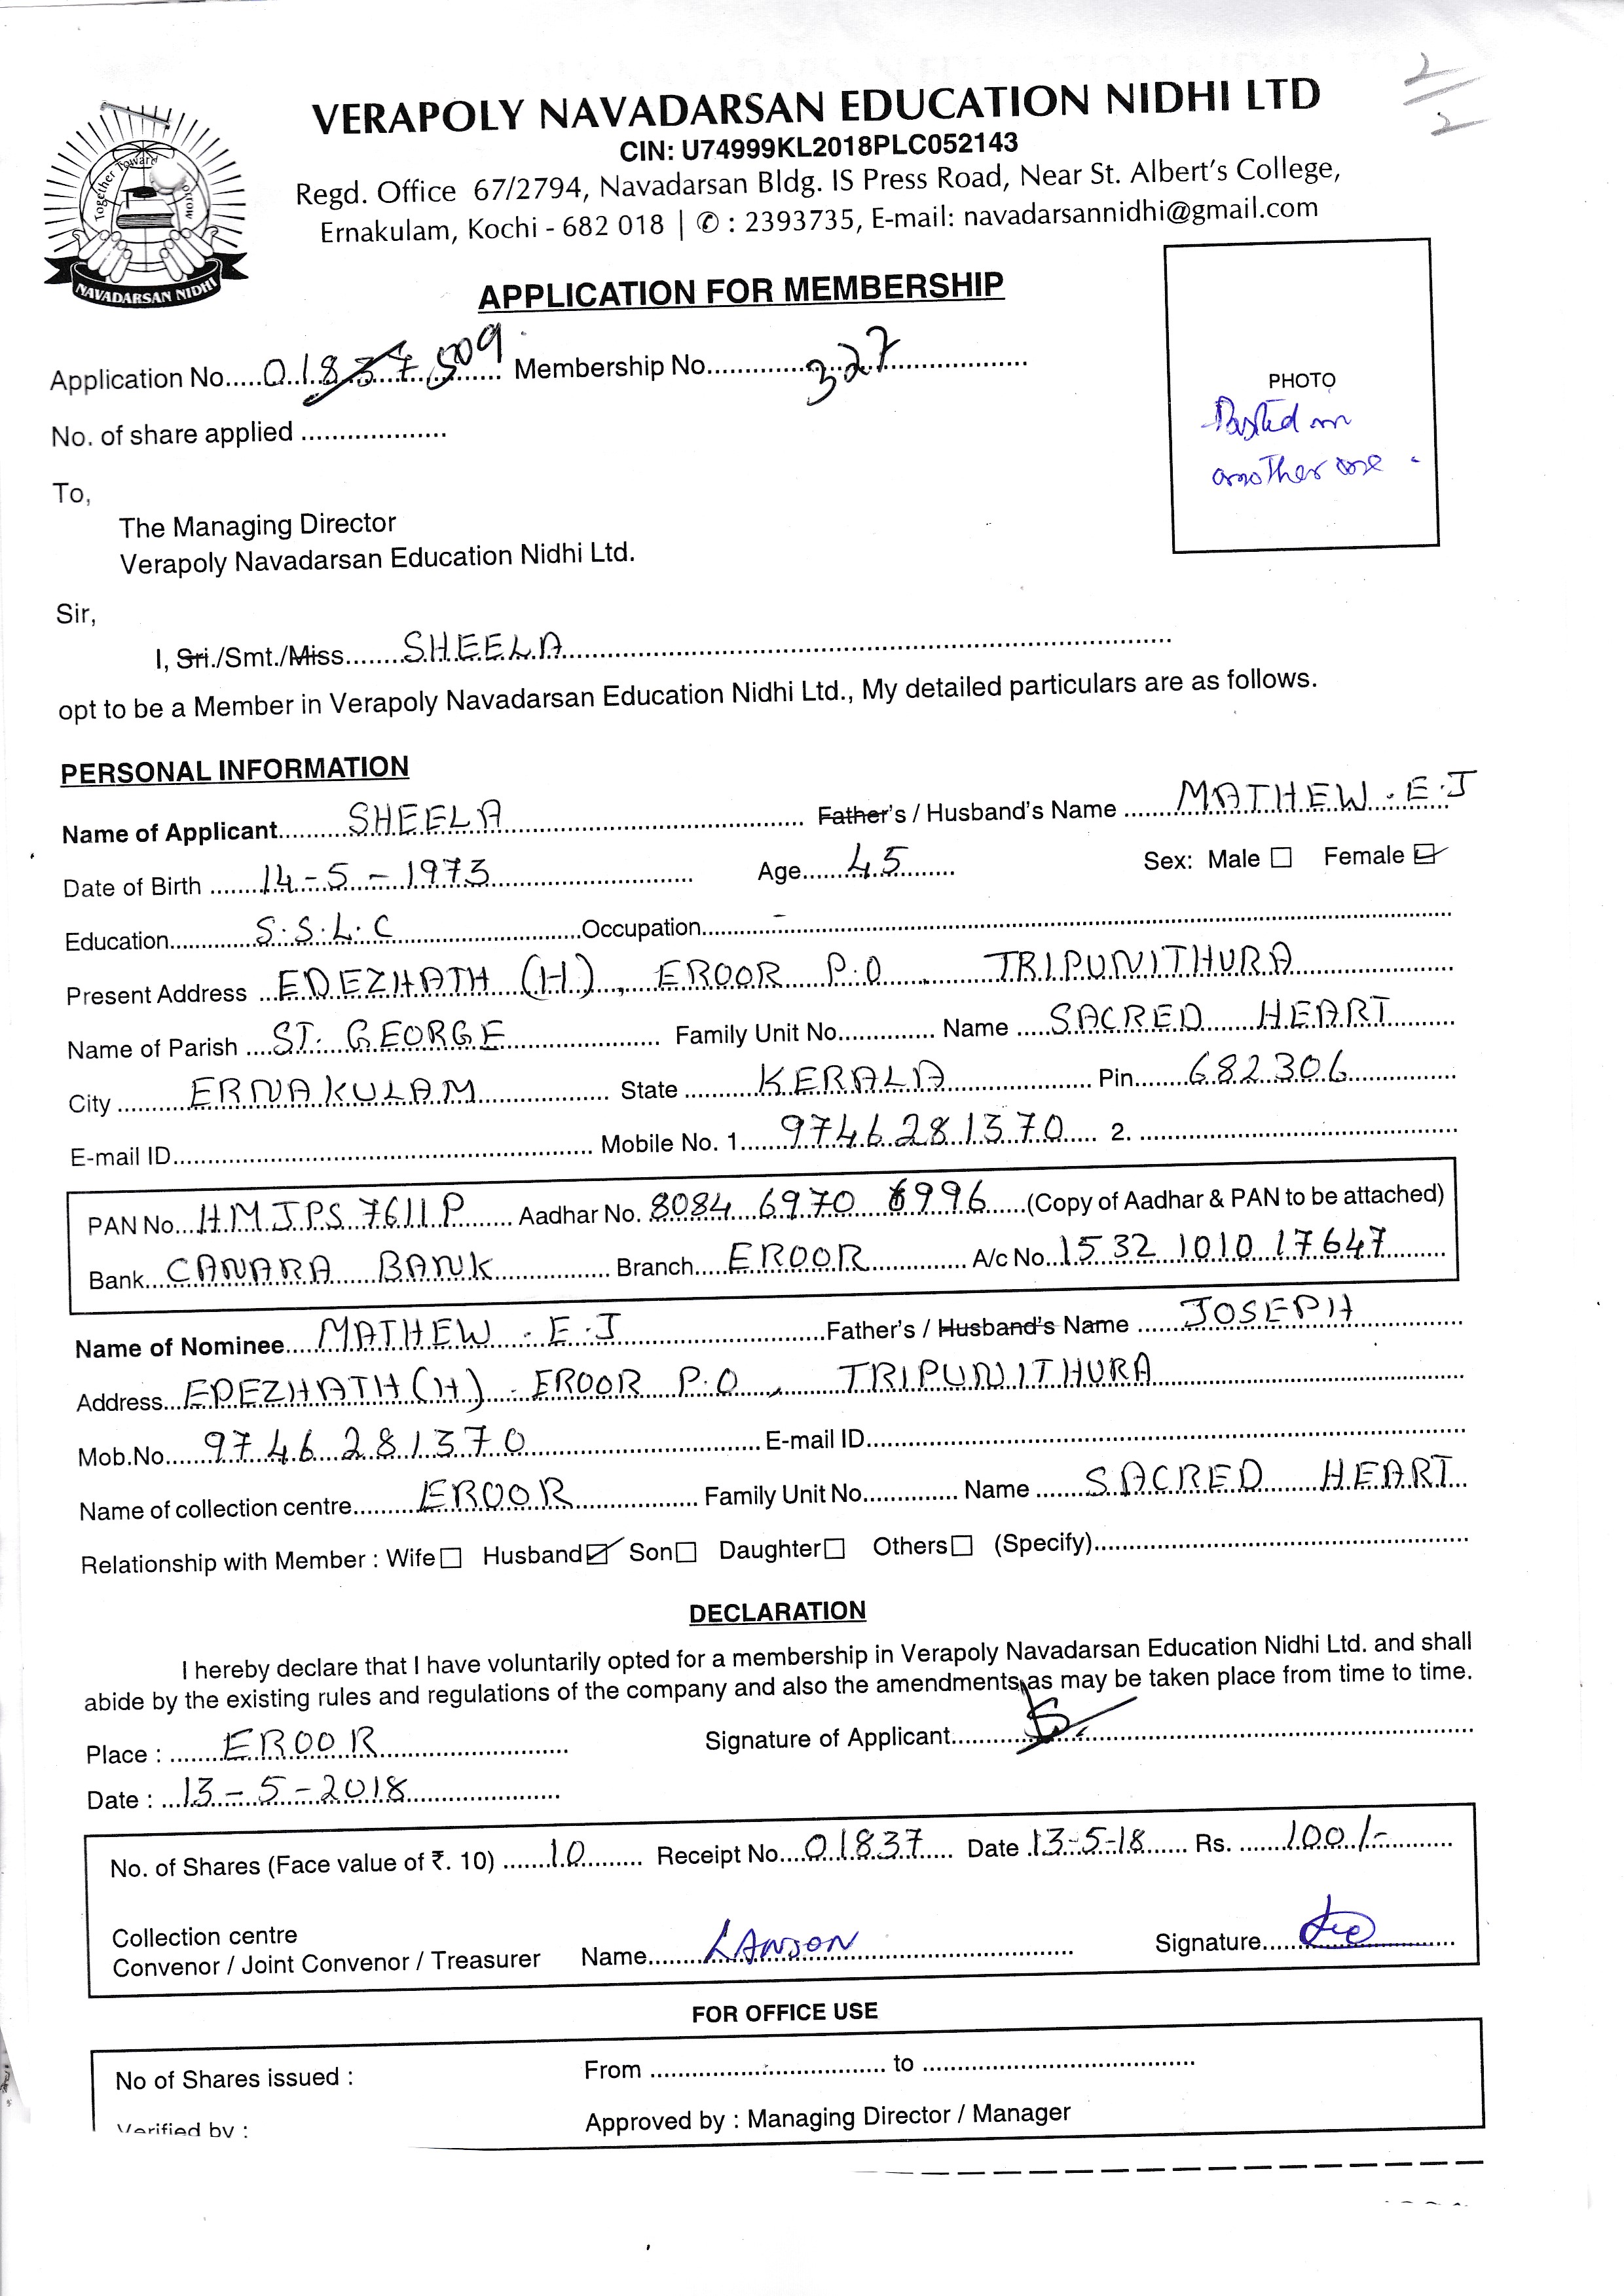 2/2
VERAPOLY NAVADARSAN EDUCATION NIDHI LTD
CIN: U74999KL2018PLC052143
Regd. Office 67/2794, Navadarsan Bldg. IS Press Road, Near St. Albert's College,
Ernakulam, Kochi - 682 018 | ✆ : 2393735, E-mail: navadarsannidhi@gmail.com
Together Toward
NAVADARSAN NIDHI
APPLICATION FOR MEMBERSHIP
Application No.....01837 509 Membership No.....327
No. of share applied ...................
PHOTO
Pasted on
another one
To,
The Managing Director
Verapoly Navadarsan Education Nidhi Ltd.
Sir,
I, Sri./Smt./Miss........SHEELA
opt to be a Member in Verapoly Navadarsan Education Nidhi Ltd., My detailed particulars are as follows.
PERSONAL INFORMATION
Name of Applicant..........SHEELA Father's / Husband's Name ........MATHEW . E . J
Date of Birth .......14 - 5 - 1973 Age......45 Sex: Male ☐ Female ☑
Education............S.S.L.C Occupation.....-
Present Address ...EDEZHATH (H), EROOR P.O, TRIPUNITHURA
Name of Parish ....ST. GEORGE Family Unit No............. Name .....SACRED HEART
City ..........ERNAKULAM State ..........KERALA Pin.......682306
E-mail ID........ Mobile No. 1......9746281370 2. ........
PAN No...HMJPS 7611P Aadhar No. 8084 6970 6996 (Copy of Aadhar & PAN to be attached)
Bank...CANARA BANK Branch.....EROOR A/c No..1532 1010 17647
Name of Nominee....MATHEW . E . J Father's / Husband's Name ......JOSEPH
Address...EDEZHATH (H). EROOR P.O, TRIPUNITHURA
Mob.No......9746281370 E-mail ID........
Name of collection centre........EROOR Family Unit No............. Name .......SACRED HEART
Relationship with Member : Wife☐ Husband☑ Son☐ Daughter☐ Others☐ (Specify)........
DECLARATION
I hereby declare that I have voluntarily opted for a membership in Verapoly Navadarsan Education Nidhi Ltd. and shall
abide by the existing rules and regulations of the company and also the amendments as may be taken place from time to time.
Place : .......EROOR Signature of Applicant...........
Date : ...13 - 5 - 2018
No. of Shares (Face value of ₹. 10) ......10 Receipt No....01837 Date .13-5-18 Rs. ......100/-
Collection centre
Convenor / Joint Convenor / Treasurer Name........LANSON Signature.....
FOR OFFICE USE
No of Shares issued : From ............ to ............
Verified by : Approved by : Managing Director / Manager